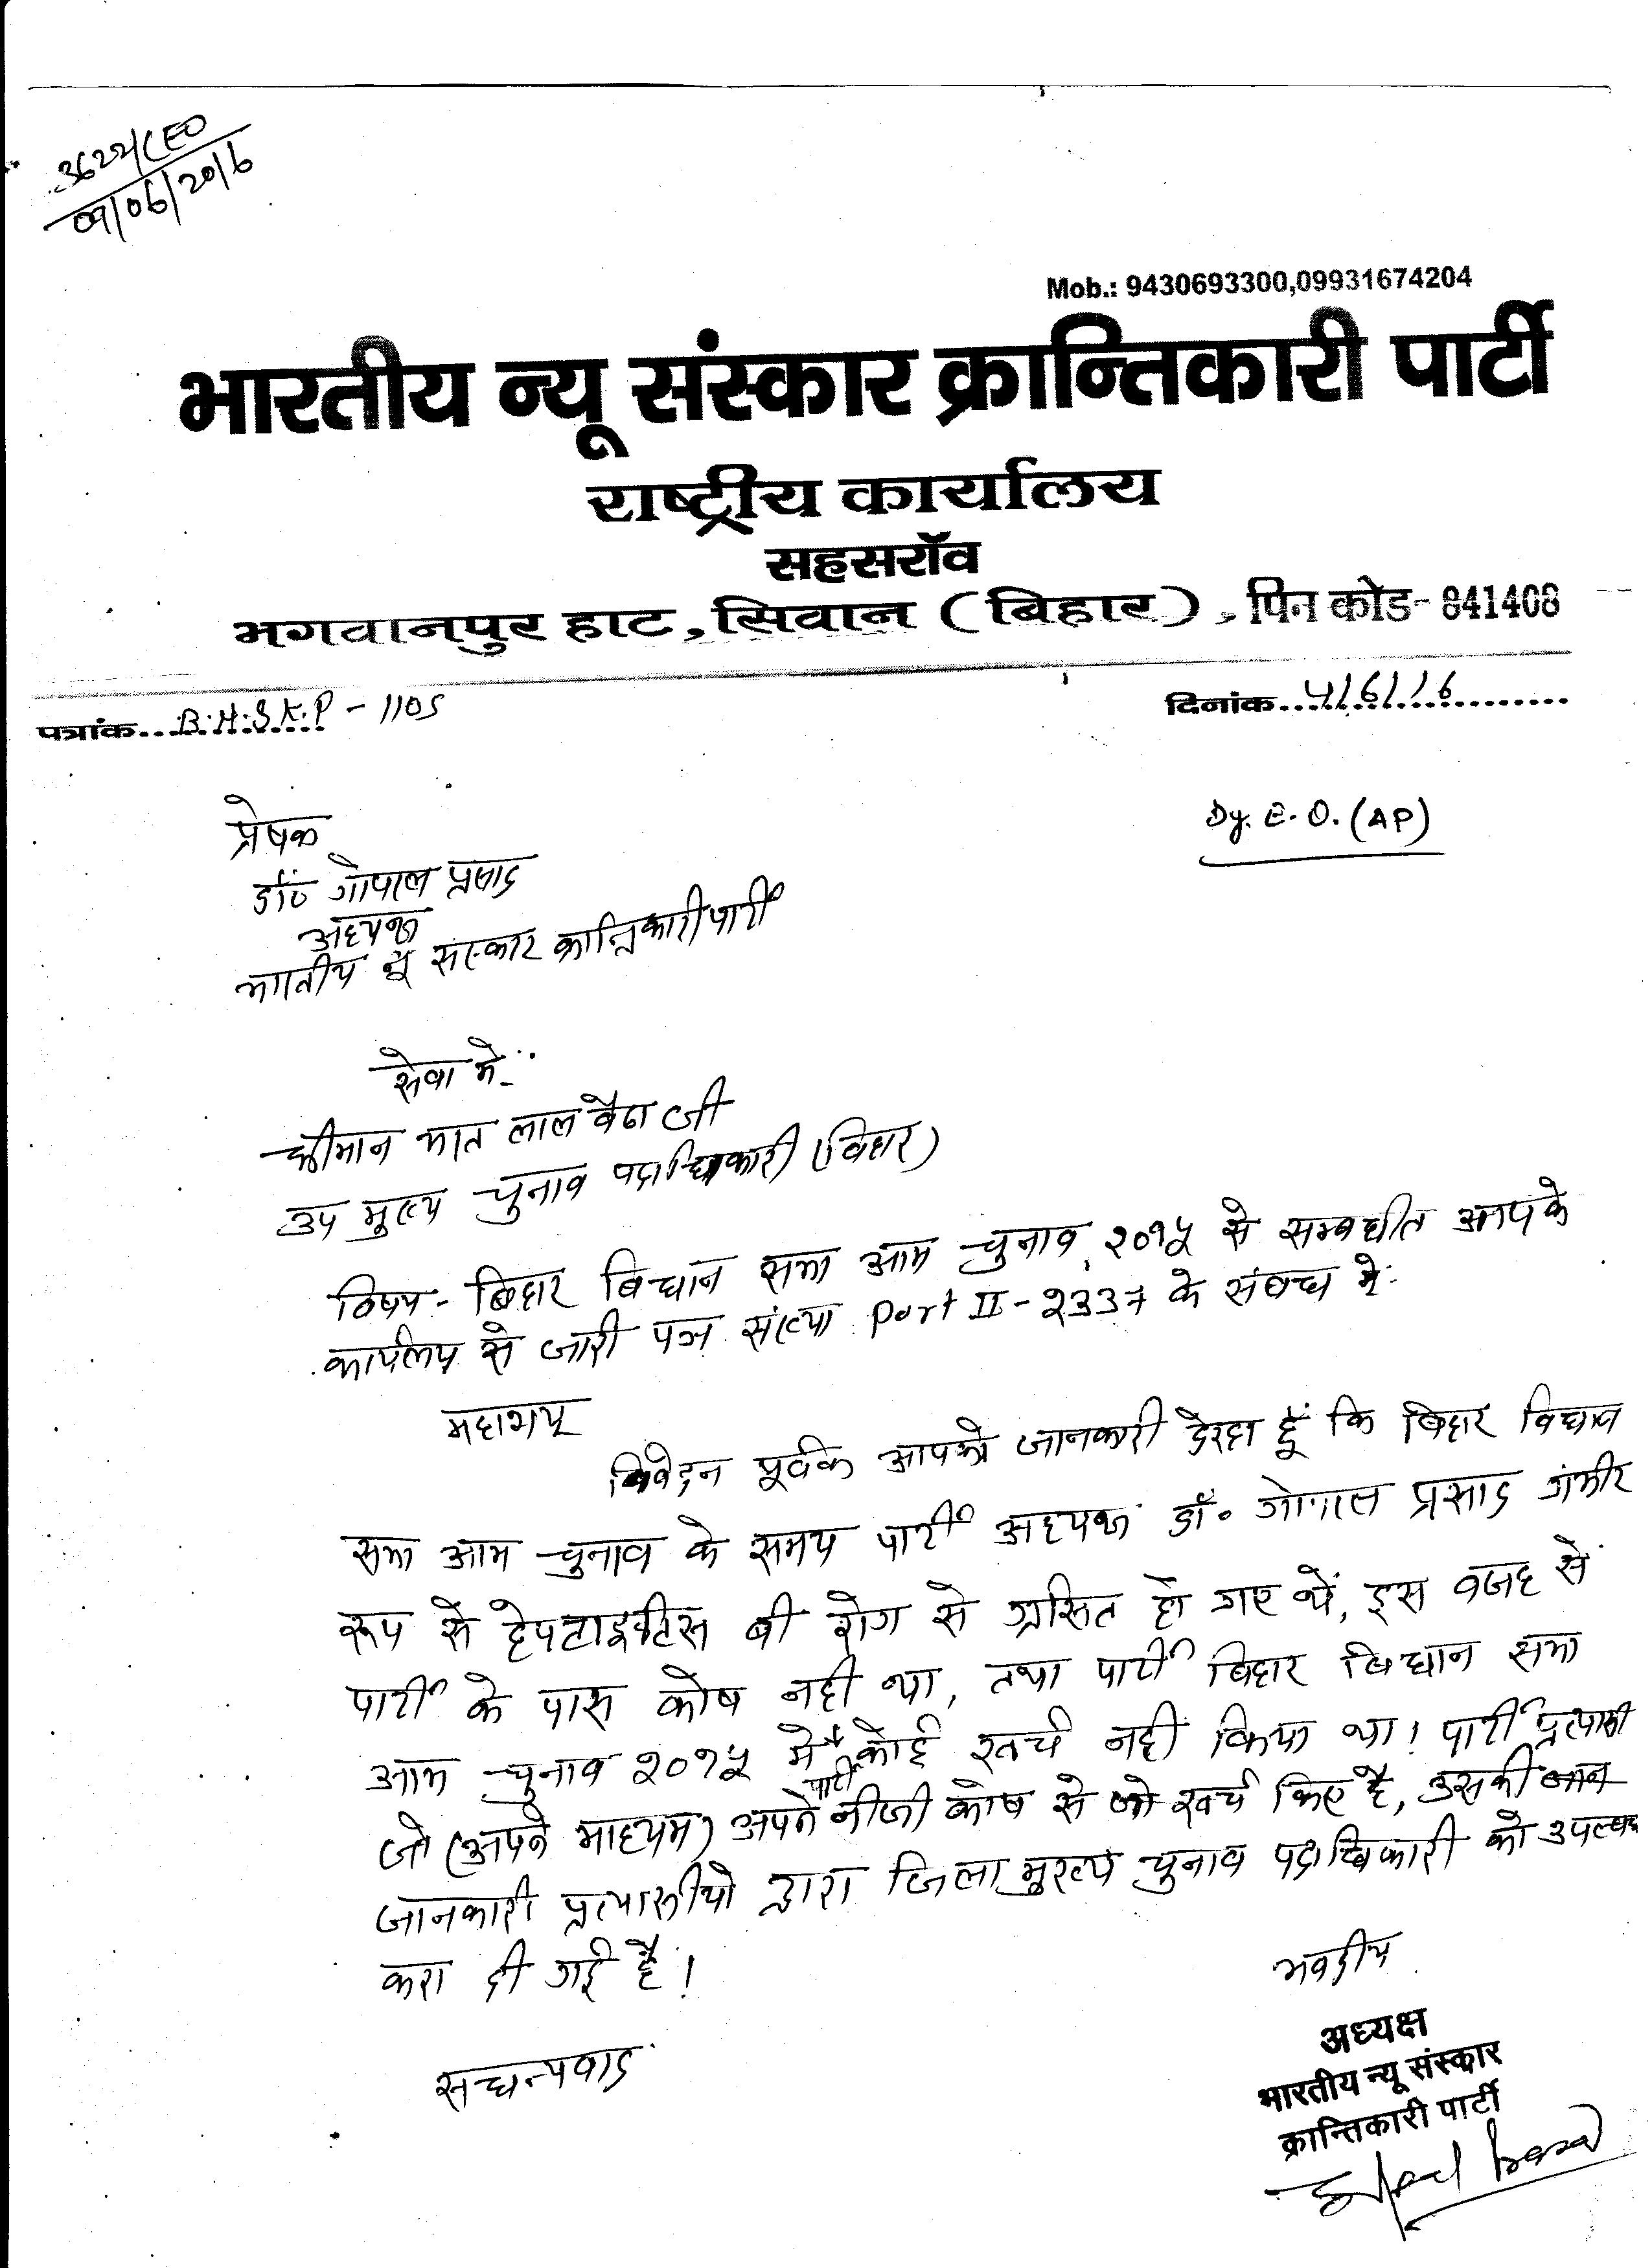 3622/CEO
09/06/2016
Mob.: 9430693300,09931674204
भारतीय न्यू संस्कार क्रान्तिकारी पार्टी
राष्ट्रीय कार्यालय
सहसराॅव
भगवानपुर हाट, सिवान (बिहार), पिन कोड- 841408
पत्रांक... B.N.S.K.P - 1105
दिनांक... 4/6/16
Dy. E. O. (AP)
प्रेषक
डॉ० गोपाल प्रसाद
अध्यक्ष
भारतीय न्यू संस्कार क्रान्तिकारी पार्टी
सेवा में:
श्रीमान भरत लाल बैठा जी
उप मुख्य चुनाव पदाधिकारी (बिहार)
विषय:- बिहार विधान सभा आम चुनाव, २०१५ से सम्बधीत आपके
कार्यलय से जारी पत्र संख्या Part II - २३३७ के संबध में:-
महाशय
निवेदन पूर्वक आपको जानकारी देरहा हूँ कि बिहार विधान
सभा आम चुनाव के समय पार्टी अध्यक्ष डॉ० गोपाल प्रसाद गंभीर
रूप से हेपटाइटीस बी रोग से ग्रसित हो गए थें, इस वजह से
पार्टी के पास कोष नही था, तथा पार्टी बिहार विधान सभा
आम चुनाव २०१५ में कोई खर्च नही किया था! पार्टी प्रत्याशी
जो (अपने माध्यम) अपने पार्टी नीजी कोष से जो खर्च किए है, उसकी जान
जानकारी प्रत्याशीयो द्वारा जिला मुख्य चुनाव पदाधिकारी को उपलब्ध
करा दी गई है।
सधन्यवाद
भवदीय
अध्यक्ष
भारतीय न्यू संस्कार
क्रान्तिकारी पार्टी